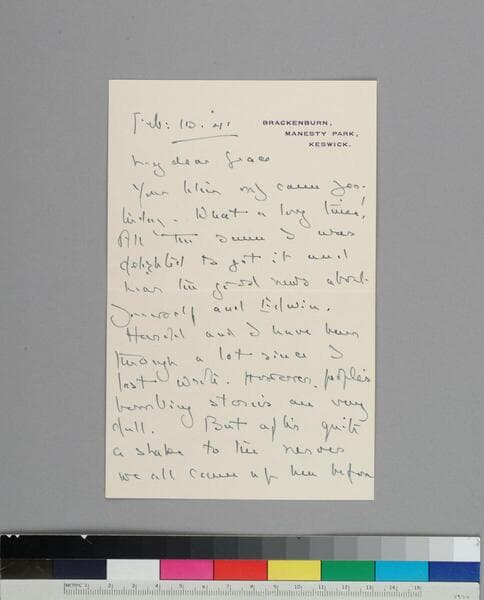 BRACKENBURN,
MANESTY PARK,
KESWICK.
Feb: 10. '41
My dear Grace
Your letter only came yes-
terday. What a long time!
All the same I was
delighted to get it and
hear the good news about
yourself and Edwin.
Harold and I have been
through a lot since I
last wrote. However, people's
bombing stories are very
dull. But after quite
a shake to the nerves
we all came up here before